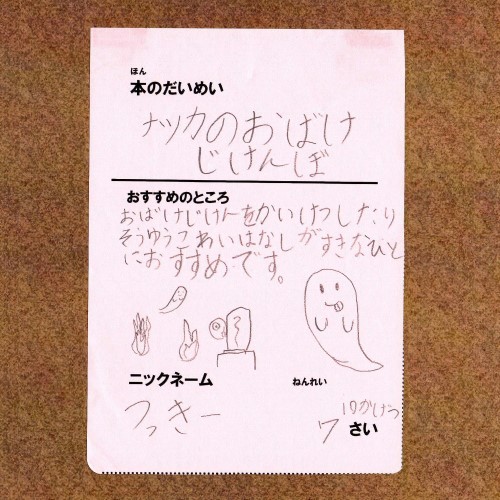 ほん
本のだいめい
ナツカのおばけ
じけんぼ
おすすめのところ
おばけじけんをかいけつしたり
そうゆうこわいはなしがすきなひと
におすすめです。
ニックネーム
つっきー
ねんれい
10かげつ
7 さい